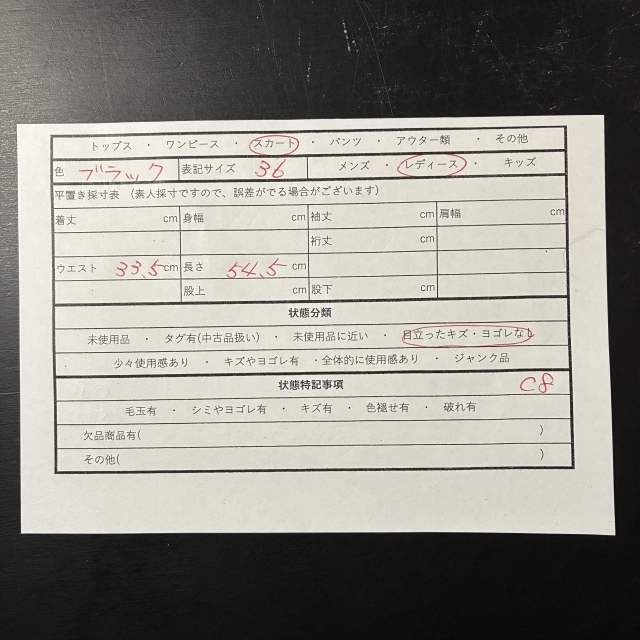 トップス ・ ワンピース ・ スカート ・ パンツ ・ アウター類 ・ その他
色 ブラック 表記サイズ 36 メンズ ・ レディース ・ キッズ
平置き採寸表 （素人採寸ですので、誤差がでる場合がございます）
着丈 cm 身幅 cm 袖丈 cm 肩幅 cm
裄丈 cm
ウエスト 33.5 cm 長さ 54.5 cm
股上 cm 股下 cm
状態分類
未使用品 ・ タグ有(中古品扱い) ・ 未使用品に近い ・ 目立ったキズ・ヨゴレなし
少々使用感あり ・ キズやヨゴレ有 ・全体的に使用感あり ・ ジャンク品
状態特記事項 C8
毛玉有 ・ シミやヨゴレ有 ・ キズ有 ・ 色褪せ有 ・ 破れ有
欠品商品有( )
その他( )